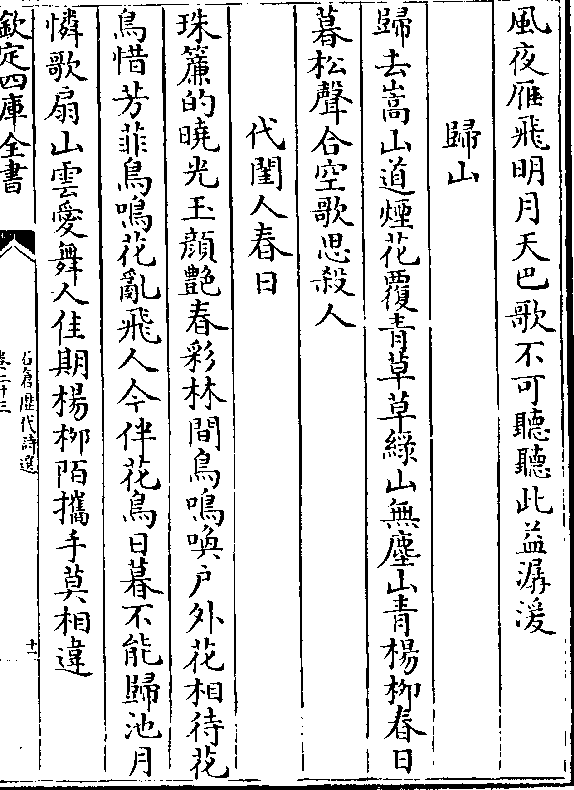 風夜雁飛明月天巴歌不可聽聽此益潺湲
歸山
歸去嵩山道煙花覆青草草綠山無塵山青楊柳春日
暮松聲合空歌思殺人
代閨人春日
珠簾的曉光玉顔艷春彩林間鳥鳴喚户外花相待花
鳥惜芳菲鳥鳴花亂飛人今伴花鳥日暮不能歸池月
憐歌扇山雲愛舞人佳期楊栁陌攜手莫相違
欽定四庫全書
石倉歴代詩選
卷二十三
十一